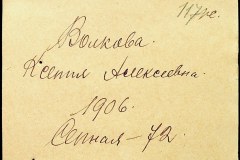 117рс.
Волкова.
Ксения Алексеевна.
1906.
Сенная – 72.